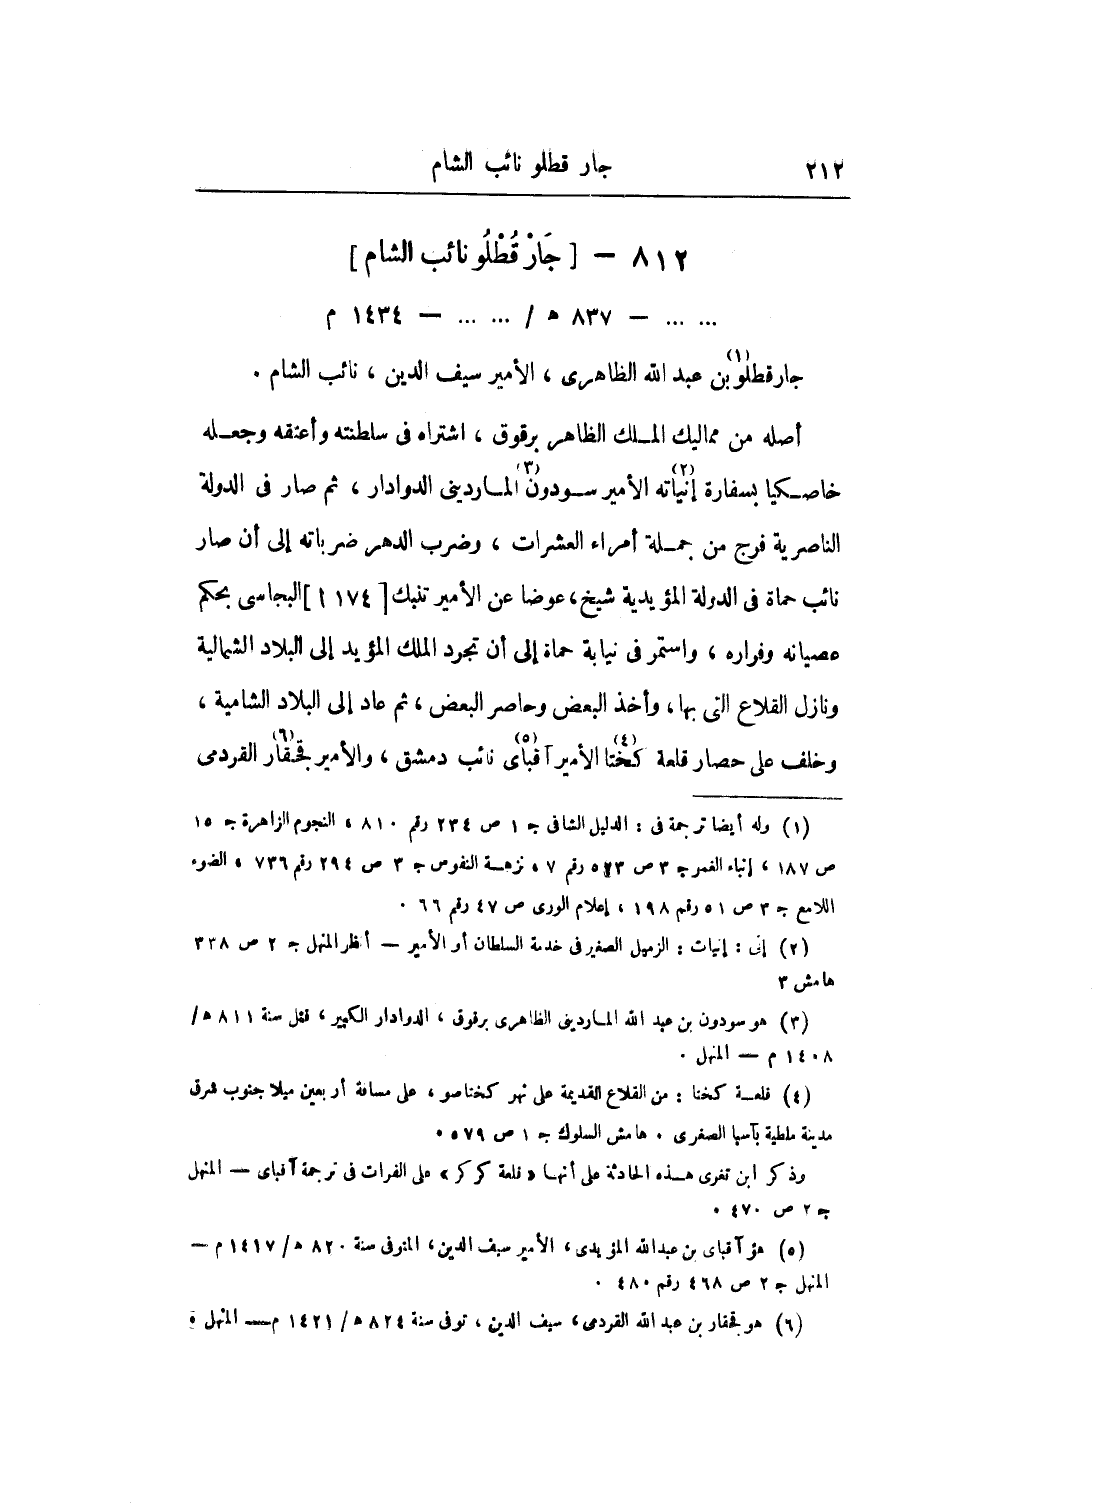 ٢١٢ جار قطلو نائب الشام
٨١٢ — [ جَارْ قُطْلُو نائب الشام ]
... ... — ٨٣٧ ھ / ... ... — ١٤٣٤ م
جار قطلو(١) بن عبد الله الظاهرى ، الأمير سيف الدين ، نائب الشام .
أصله من مماليك الملك الظاهر برقوق ، اشتراه فى سلطنته وأعتقه وجعله
خاصكيا بسفارة إنْيَاته(٢) الأمير سودون(٣) الماردينى الدوادار ، ثم صار فى الدولة
الناصرية فرج من جملة أمراء العشرات ، وضرب الدهر ضرباته إلى أن صار
نائب حماة فى الدولة المؤيدية شيخ، عوضا عن الأمير تنبك [ ١٧٤ ا ] البجاسى بحكم
عصيانه وفراره ، واستمر فى نيابة حماة إلى أن تجرد الملك المؤيد إلى البلاد الشمالية
ونازل القلاع التى بها، وأخذ البعض وحاصر البعض ، ثم عاد إلى البلاد الشامية ،
وخلف على حصار قلعة كختا(٤) الأمير آقباى(٥) نائب دمشق ، والأمير قجقار(٦) القردمى
(١) وله أيضا ترجمة فى : الدليل الشافى جـ ١ ص ٢٣٤ رقم ٨١٠ ، النجوم الزاهرة جـ ١٥
ص ١٨٧ ، إنباء الغمر جـ ٣ ص ٥٢٣ رقم ٧ ، نزهة النفوس جـ ٣ ص ٢٩٤ رقم ٧٣٦ ، الضوء
اللامع جـ ٣ ص ٥١ رقم ١٩٨ ، إعلام الورى ص ٤٧ رقم ٦٦ .
(٢) إنى : إنيات : الزميل الصغير فى خدمة السلطان أو الأمير — أنظر المنهل جـ ٢ ص ٣٣٨
هامش ٣
(٣) هو سودون بن عبد الله الماردينى الظاهرى برقوق ، الدوادار الكبير ، قتل سنة ٨١١ ھ/
١٤٠٨ م — المنهل .
(٤) قلعة كختا : من القلاع القديمة على نهر كختاصو ، على مسافة أربعين ميلا جنوب شرق
مدينة ملطية بآسيا الصغرى . هامش السلوك جـ ١ ص ٥٧٩ .
وذكر ابن تغرى هذه الحادثة على أنها « قلعة كركر » على الفرات فى ترجمة آقباى — المنهل
جـ ٢ ص ٤٧٠ .
(٥) هو آقباى بن عبدالله المؤيدى، الأمير سيف الدين، المتوفى سنة ٨٢٠ ھ/ ١٤١٧ م —
المنهل جـ ٢ ص ٤٦٨ رقم ٤٨٠ .
(٦) هو قجقار بن عبد الله القردمى، سيف الدين ، توفى سنة ٨٢٤ ھ/ ١٤٢١ م — المنهل